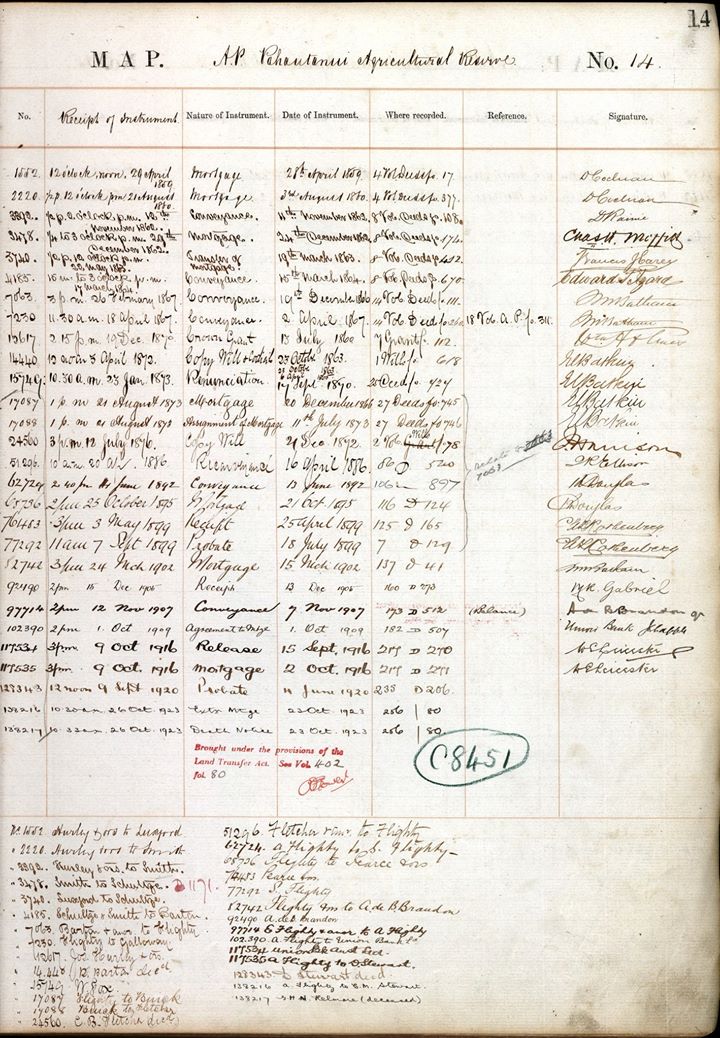 14
MAP. A.P. Pahautanui Agricultural Reserve No. 14.
No. Receipt of Instrument. Nature of Instrument. Date of Instrument. Where recorded. Reference. Signature.
1552. 12 o'clock noon. 29 April 1859 Mortgage 28th April 1859. 4 Vol Deeds fo. 17. D Cochran
2220. p. 12 o'clock pm 21 August 1860 Mortgage 3rd August 1860. 4 Vol. Deeds fo. 377. D Cochran
3392. p. 2 o'clock p.m. 12th November 1862. Conveyance. 11th November 1862. 8 Vol. Deeds p. 108.
3478. to 3 o'clock p.m. 29th December 1862. Mortgage. 24th December 1862. 8 Vol. Deeds p. 174.
3740. p. 12 o'clock p.m. 22 May 1863. Transfer of Mortgage. 19th March 1863. 8 Vol. Deeds p. 432. Francis Carey
4185. to 3 o'clock p.m. 17 March 1864. Conveyance. 15th March 1864. 8 Vol. Deeds p. 670. Edward
7063. 3 p.m. 26 February 1867. Conveyance. 19th December 1866 14 Vol. Deeds fo. 111.
7230 11.30 a.m. 18 April 1867. Conveyance. 2 April 1867. 14 Vol. Deeds fo. 18 Vol. A.P. fo. 311.
13617 2.15 p.m. 19 Dec. 1870 Crown Grant 13 July 1860 7 Grants fo. 112.
14440 12 noon 3 April 1872. Copy Will & Codicil 23 October 1863. 1 Wills fo 618
15749 10.30 a.m. 23 Jan. 1873. Renunciation. 14 Sept. 1870. 25 Deeds fo. 424
17087 1 p.m 21 August 1873 Mortgage 20 December 1866 27 Deeds fo. 745
17088 1 p.m 21 August 1873 Assignment of Mortgage 11th July 1873 27 Deeds fo 746
24560 3 p.m. 12 July 1876. Copy Will 21 Dec. 1872. 2 Vol. Wills 178
51296. 10 a.m. 20 1886 Reconveyance 16 April 1886. 86 D 520
62724 2.40 pm 14 June 1892 Conveyance 13 June 1892 106 897 Douglas
65736 2 pm 25 October 1895 Mortgage 21 Oct. 1895 116 D 124 Douglas
76453 3 pm 3 May 1899 Receipt 25 April 1899 125 D 165
77292 11 am 7 Sept 1899 Probate 18 July 1899 7 D 129
82742 3 pm 24 Mch 1902 Mortgage 15 Mch 1902 137 D 41
92490 2 pm 15 Dec 1905 Receipt 13 Dec 1905 160 D 273 Gabriel
97714 2 pm 12 Nov 1907 Conveyance 7 Nov 1907 173 D 512 A de B Brandon jr
102390 2 pm 1. Oct 1909 Agreement to Mtge 1. Oct 1909 182 D 507 Union Bank
117534 3 pm 9 Oct 1916 Release 15 Sept, 1916 217 D 270 Leicester
117535 3 pm. 9 Oct. 1916 Mortgage 2 Oct. 1916 217 D 271 Leicester
128343 12 noon 9 Sept 1920 Probate 11 June 1920 235 D 206.
138216 10.30 a.m. 26 Oct. 1923 Extn Mtge 23 Oct. 1923 256 80
138217 10.32 a.m. 26 Oct. 1923 Death Notice 23 Oct. 1923 256 80
Brought under the provisions of the
Land Transfer Act. See Vol. 402
fol. 80
C8451
No. 1552. Hurley & ors to Luxford
" 2220. Hurley & ors to Smith
" 3392. Hurley & ors. to Smith.
" 3478. Smith to Schultze. D1171.
" 3740. Luxford to Schultze.
" 4185. Schultze & Smith to Barton.
" 7063. Barton & anor. to Flighty
" 7230. Flighty to Galloway
" 13617. Gov. Hurley & ors.
" 14440 Barton dec'd.
" 15749 Fox
" 17087 Flighty to Burgk
" 17088 Burgk to Fletcher
" 24560. C. B. Fletcher dec'd
51296. Fletcher & anr. to Flighty
62724. A Flighty to S. Flighty
65736 Flighty to Pearce & ors
76453 Pearce &ors.
77292 S. Flighty
82742 Flighty &ors to A. de B. Brandon
92490 A. de B. Brandon
97714 S Flighty & anor to A Flighty
102.390 A Flighty to Union Bank
117534 Union Bk Aust Ltd.
117535 A. Flighty to D. Stewart.
128343 D Stewart decd.
138216 A. Flighty to E. M. Stewart.
138217 (deceased)